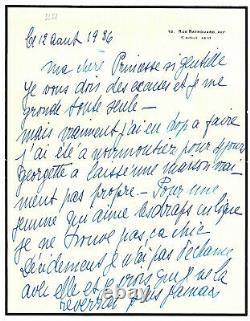 10, Rue Raynouard, XVIe
Ce 12 aout 1926
ma chère Princesse si gentille
je vous dois des excuses et je me
gronde toute seule —
mais vraiment j'ai eu trop a faire
j'ai été a
georgette a laissé une maison vrai-
ment pas propre — Pour une
femme qui aime les draps en
je ne trouve pas ça chic —
Décidemment je n'ai pas de chance
avec elle et je crois que je ne la
reverrai plus jamais
ebay.com